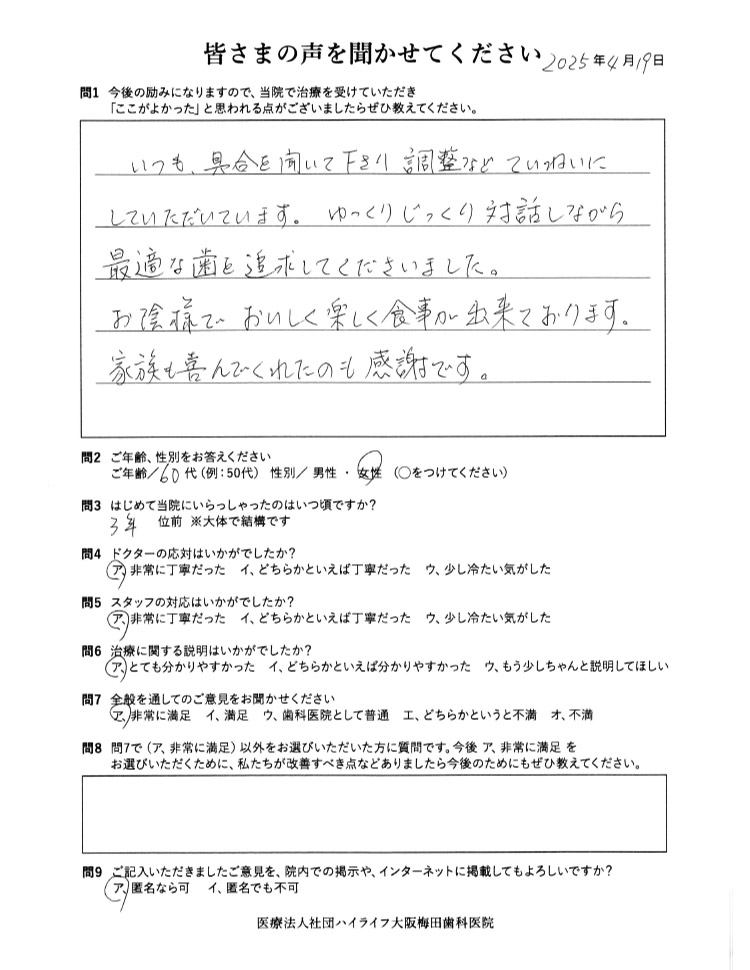 皆さまの声を聞かせてください 2025年4月19日
問1 今後の励みになりますので、当院で治療を受けていただき
「ここがよかった」と思われる点がございましたらぜひ教えてください。
いつも、具合を聞いて下さり 調整など ていねいに
していただいています。 ゆっくりじっくり 対話しながら
最適な歯を追求してくださいました。
お陰様で おいしく楽しく食事が出来ております。
家族も喜んでくれたのも感謝です。
問2 ご年齢、性別をお答えください
ご年齢/60代(例:50代) 性別/ 男性 ・ 女性 (○をつけてください)
問3 はじめて当院にいらっしゃったのはいつ頃ですか?
3年 位前 ※大体で結構です
問4 ドクターの応対はいかがでしたか?
ア、非常に丁寧だった イ、どちらかといえば丁寧だった ウ、少し冷たい気がした
問5 スタッフの対応はいかがでしたか?
ア、非常に丁寧だった イ、どちらかといえば丁寧だった ウ、少し冷たい気がした
問6 治療に関する説明はいかがでしたか?
ア、とても分かりやすかった イ、どちらかといえば分かりやすかった ウ、もう少しちゃんと説明してほしい
問7 全般を通してのご意見をお聞かせください
ア、非常に満足 イ、満足 ウ、歯科医院として普通 エ、どちらかというと不満 オ、不満
問8 問7で(ア、非常に満足)以外をお選びいただいた方に質問です。今後 ア、非常に満足 を
お選びいただくために、私たちが改善すべき点などありましたら今後のためにもぜひ教えてください。
問9 ご記入いただきましたご意見を、院内での掲示や、インターネットに掲載してもよろしいですか?
ア、匿名なら可 イ、匿名でも不可
医療法人社団ハイライフ大阪梅田歯科医院